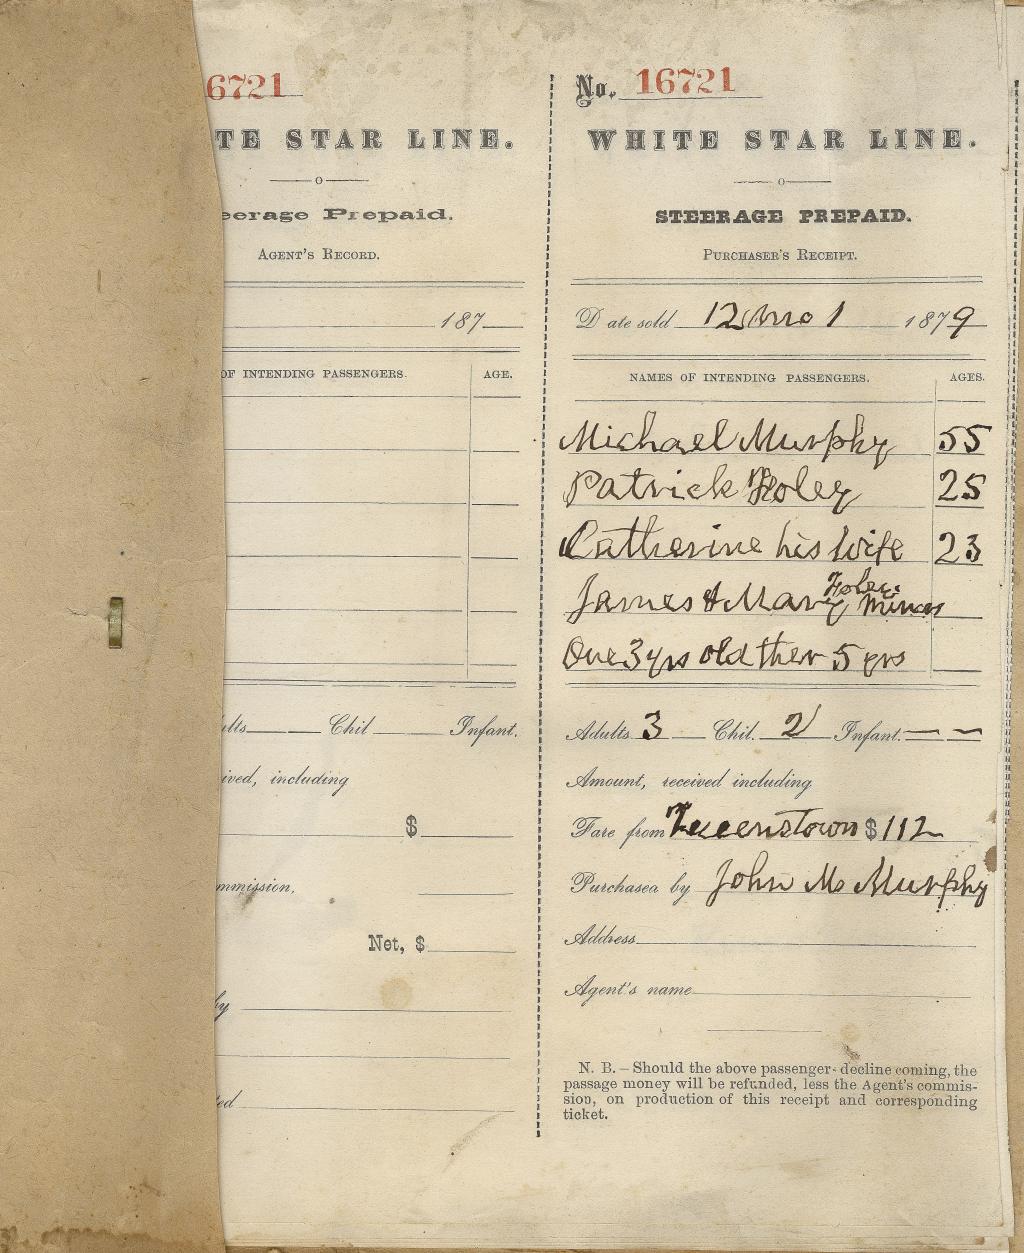 6721
TE STAR LINE.
eerage Prepaid.
AGENT'S RECORD.
187
OF INTENDING PASSENGERS. AGE.
ults Chil Infant.
ived, including
$
mmission.
Net, $
by
ted
No. 16721
WHITE STAR LINE.
STEERAGE PREPAID.
PURCHASER'S RECEIPT.
Date sold 12 mo 1 1879
NAMES OF INTENDING PASSENGERS. AGES.
Michael Murphy 55
Patrick Foley 25
Catherine his wife 23
Foley
James & Mary Minors
One 3 yrs old ther 5 yrs
Adults 3 Chil. 2 Infant. — —
Amount, received including
Fare from Queenstown $ 112
Purchased by John M. Murphy
Address
Agent's name
N. B. – Should the above passenger decline coming, the
passage money will be refunded, less the Agent's commis-
sion, on production of this receipt and corresponding
ticket.